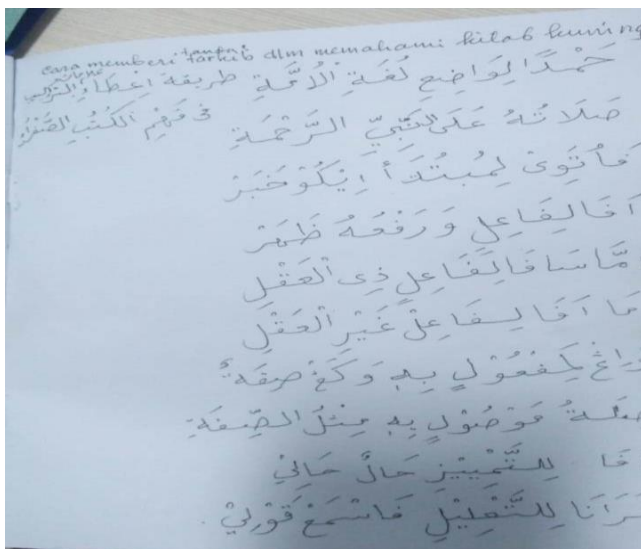 Cara memberi tanda tarkib dlm memahami kitab kuning
طريقة إعطاء التركيب
فى فهم الكتب الصفراء
حَمْدًا لِوَاضِعِ لُغَةِ الْأُمَّةِ
صَلَاتُهُ عَلَى النَّبِيِّ الرَّحْمَةِ
فَأُتَوِىْ لِمُبْتَدَأ اِيْكُوْ خَبَرْ
اَفَا لِفَاعِلِ وَرَفْعُهُ ظَهَرْ
مَّا سَافَا لِفَاعِلٍ ذِى الْعَقْلِ
مَا اَفَا لِفَاعِلْ غَيْرِ الْعَقْلِ
لِمَفْعُوْلٍ بِهِ وَكَغْ صِفَةْ
صِلَةُ مَوْصُوْلٍ بِهِ مِثْلُ الصِّفَةِ
فَا لِلتَّمْيِيْزِ حَالْ حَالِيْ
لِلتَّعْلِيْلِ فَاسْمَعْ قَوْلِيْ .